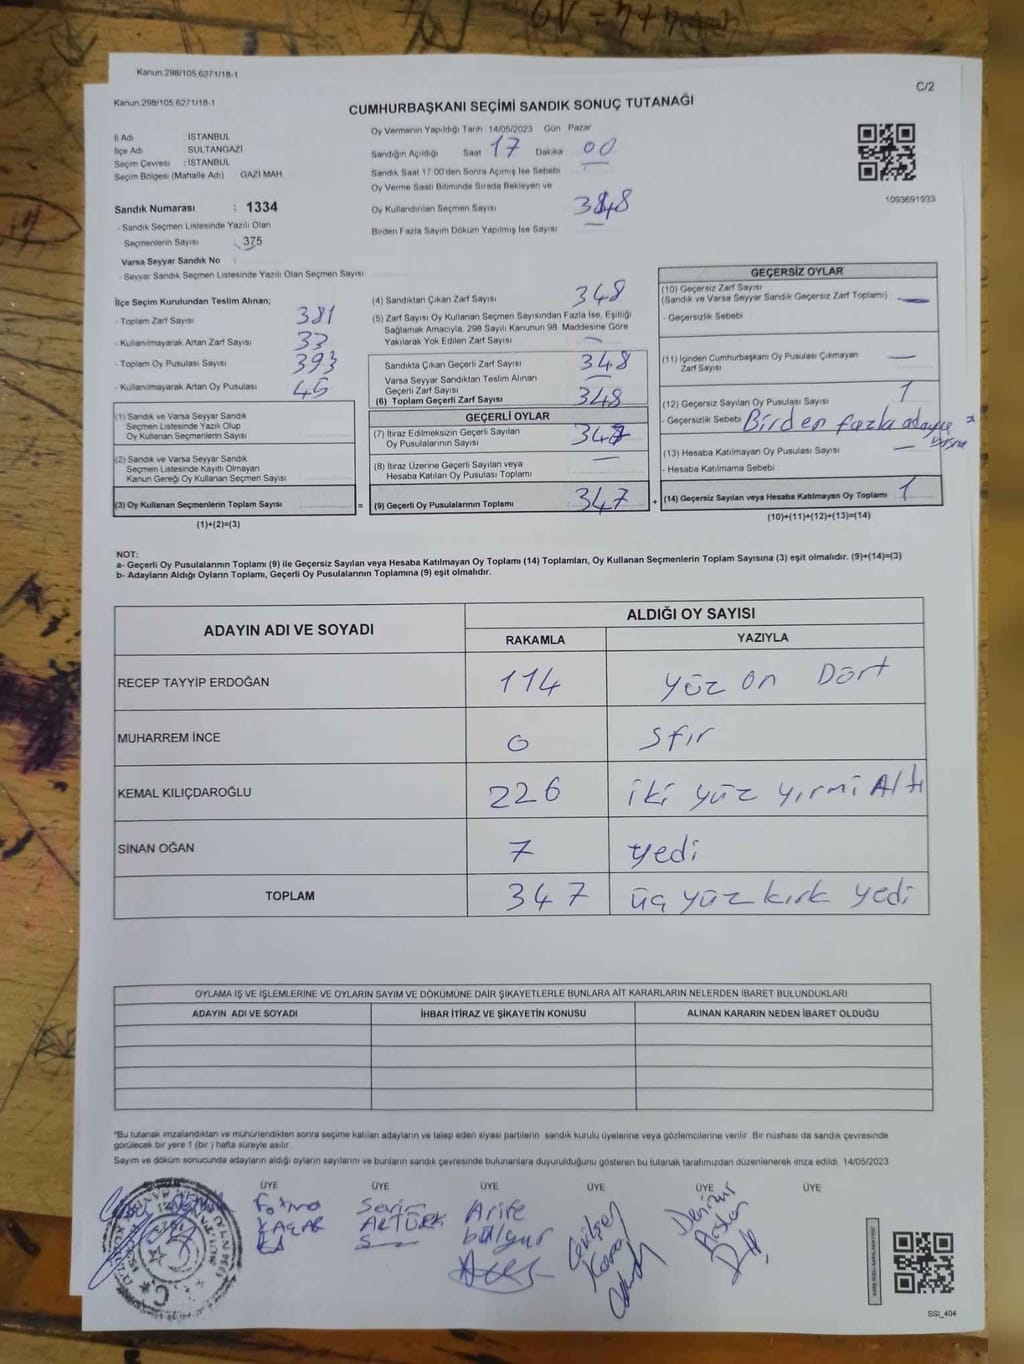 Kanun.298/105.6271/18-1
Kanun.298/105.6271/18-1
C/2
CUMHURBAŞKANI SEÇİMİ SANDIK SONUÇ TUTANAĞI
İl Adı İSTANBUL
İlçe Adı SULTANGAZİ
Seçim Çevresi : İSTANBUL
Seçim Bölgesi (Mahalle Adı) GAZİ MAH
Sandık Numarası : 1334
- Sandık Seçmen Listesinde Yazılı Olan
Seçmenlerin Sayısı 375
Varsa Seyyar Sandık No
- Seyyar Sandık Seçmen Listesinde Yazılı Olan Seçmen Sayısı
Oy Vermenin Yapıldığı Tarih 14/05/2023 Gün Pazar
Sandığın Açıldığı Saat 17 Dakika 00
Sandık Saat 17 00'den Sonra Açımış İse Sebebi
Oy Verme Saati Bitiminde Sırada Bekleyen ve
Oy Kullandırılan Seçmen Sayısı 348
Birden Fazla Sayım Döküm Yapılmış İse Sayısı
1093691933
İlçe Seçim Kurulundan Teslim Alınan;
- Toplam Zarf Sayısı 381
- Kullanılmayarak Artan Zarf Sayısı 33
- Toplam Oy Pusulası Sayısı 393
- Kullanılmayarak Artan Oy Pusulası 45
(1) Sandık ve Varsa Seyyar Sandık
Seçmen Listesinde Yazılı Olup
Oy Kullanan Seçmenlerin Sayısı
(2) Sandık ve Varsa Seyyar Sandık
Seçmen Listesinde Kayıtlı Olmayan
Kanun Gereği Oy Kullanan Seçmen Sayısı
(3) Oy Kullanan Seçmenlerin Toplam Sayısı
(1)+(2)=(3)
=
(4) Sandıktan Çıkan Zarf Sayısı 348
(5) Zarf Sayısı Oy Kullanan Seçmen Sayısından Fazla İse, Eşitliği
Sağlamak Amacıyla, 298 Sayılı Kanunun 98. Maddesine Göre
Yakılarak Yok Edilen Zarf Sayısı —
Sandıkta Çıkan Geçerli Zarf Sayısı 348
Varsa Seyyar Sandıktan Teslim Alınan
Geçerli Zarf Sayısı —
(6) Toplam Geçerli Zarf Sayısı 348
GEÇERLİ OYLAR
(7) İtiraz Edilmeksizin Geçerli Sayılan
Oy Pusulalarının Sayısı 347
(8) İtiraz Üzerine Geçerli Sayılan veya
Hesaba Katılan Oy Pusulası Toplamı —
(9) Geçerli Oy Pusulalarının Toplamı 347
+
GEÇERSİZ OYLAR
(10) Geçersiz Zarf Sayısı
(Sandık ve Varsa Seyyar Sandık Geçersiz Zarf Toplamı) —
- Geçersizlik Sebebi
(11) İçinden Cumhurbaşkanı Oy Pusulası Çıkmayan
Zarf Sayısı —
(12) Geçersiz Sayılan Oy Pusulası Sayısı 1
- Geçersizlik Sebebi Birden fazla adaya
(13) Hesaba Katılmayan Oy Pusulası Sayısı —
- Hesaba Katılmama Sebebi
(14) Geçersiz Sayılan veya Hesaba Katılmayan Oy Toplamı 1
(10)+(11)+(12)+(13)=(14)
NOT:
a- Geçerli Oy Pusulalarının Toplamı (9) ile Geçersiz Sayılan veya Hesaba Katılmayan Oy Toplamı (14) Toplamları, Oy Kullanan Seçmenlerin Toplam Sayısına (3) eşit olmalıdır. (9)+(14)=(3)
b- Adayların Aldığı Oyların Toplamı, Geçerli Oy Pusulalarının Toplamına (9) eşit olmalıdır.
ADAYIN ADI VE SOYADI
ALDIĞI OY SAYISI
RAKAMLA YAZIYLA
RECEP TAYYİP ERDOĞAN 114 yüz on Dört
MUHARREM İNCE 0 Sfır
KEMAL KILIÇDAROĞLU 226 iki yüz yirmi Altı
SİNAN OĞAN 7 yedi
TOPLAM 347 üç yüz kırk yedi
OYLAMA İŞ VE İŞLEMLERİNE VE OYLARIN SAYIM VE DÖKÜMÜNE DAİR ŞİKAYETLERLE BUNLARA AİT KARARLARIN NELERDEN İBARET BULUNDUKLARI
ADAYIN ADI VE SOYADI İHBAR İTİRAZ VE ŞİKAYETİN KONUSU ALINAN KARARIN NEDEN İBARET OLDUĞU
*Bu tutanak imzalandıktan ve mühürlendikten sonra seçime katılan adayların ve talep eden siyasi partilerin sandık kurulu üyelerine veya gözlemcilerine verilir. Bir nüshası da sandık çevresinde
görülecek bir yere 1 (bir) hafta süreyle asılır.
Sayım ve döküm sonucunda adayların aldığı oyların sayılarını ve bunların sandık çevresinde bulunanlara duyurulduğunu gösteren bu tutanak tarafımızdan düzenlenerek imza edildi. 14/05/2023
ÜYE ÜYE ÜYE ÜYE ÜYE ÜYE
Fatma KAÇAR
AKTÜRK
Arife
Arslan
SSI_404